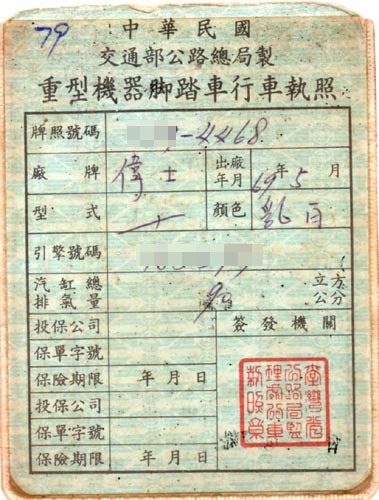 79
中華民國
交通部公路總局製
重型機器脚踏車行車執照
牌照號碼 -4468
廠牌 偉士 出廠年月 69年5月
型式 顏色 乳白
引擎號碼
汽缸總排氣量 立方公分
投保公司 簽發機關
保單字號
保險期限 年月日
投保公司
保單字號
保險期限 年月日